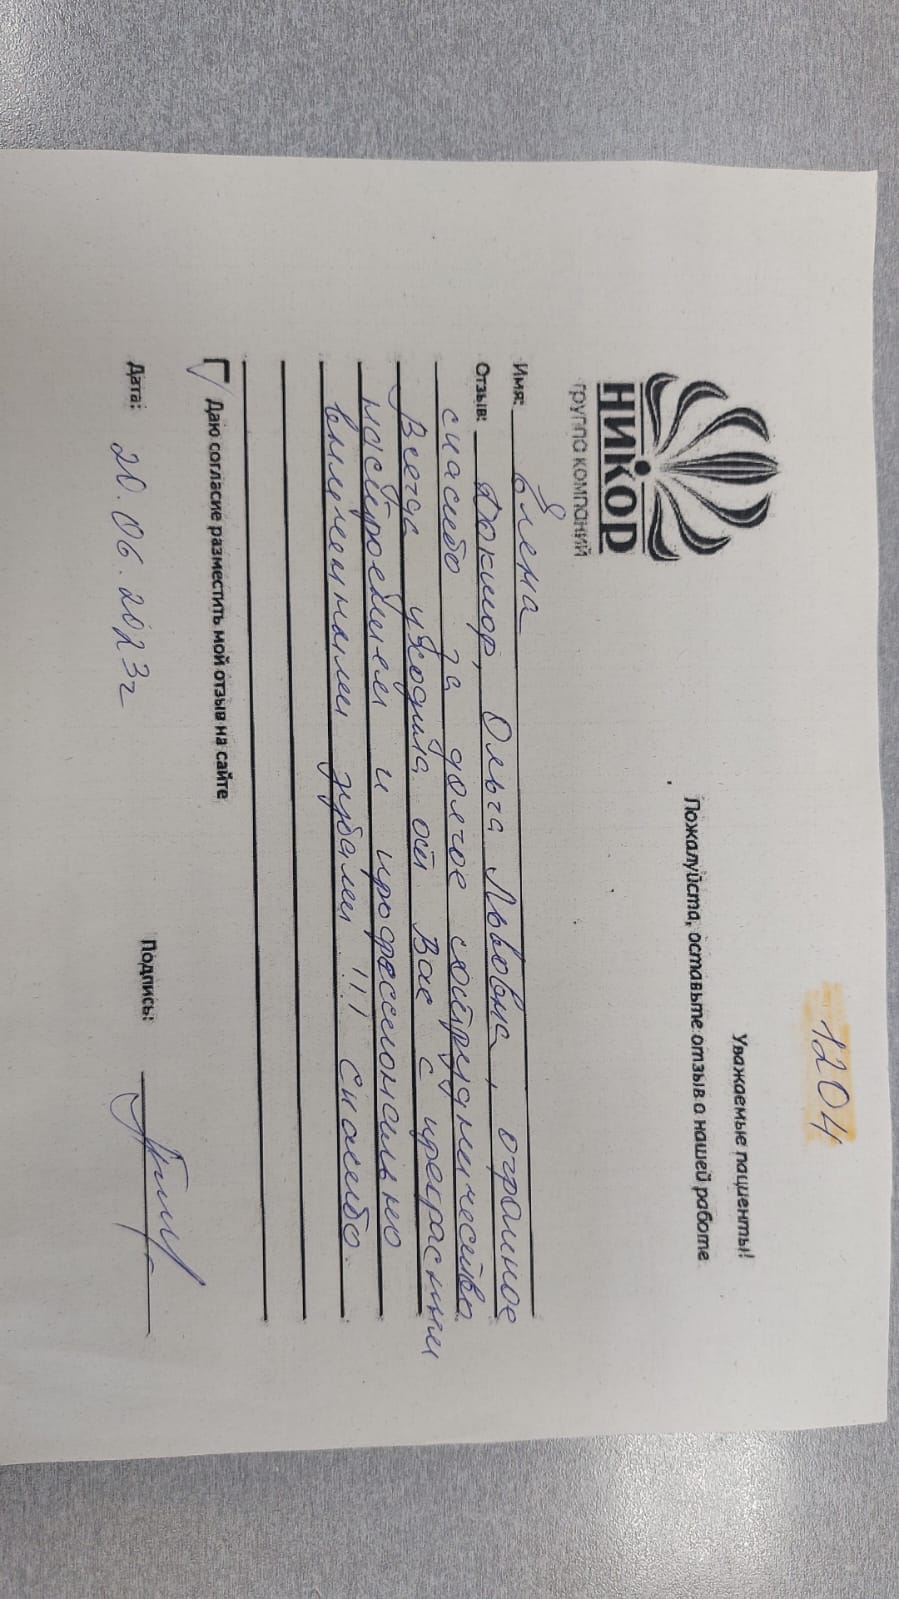 1204
НИКОР
ГРУППА КОМПАНИЙ
Уважаемые пациенты!
Пожалуйста, оставьте отзыв о нашей работе
Имя: Елена
Отзыв: Доктор, Ольга Львовна, огромное
спасибо за долгое сотрудничество.
Всегда уходила от Вас с прекрасным
настроением и профессионально
вылеченными зубами!!! Спасибо.
Даю согласие разместить мой отзыв на сайте
Дата: 20.06.2023г
Подпись: